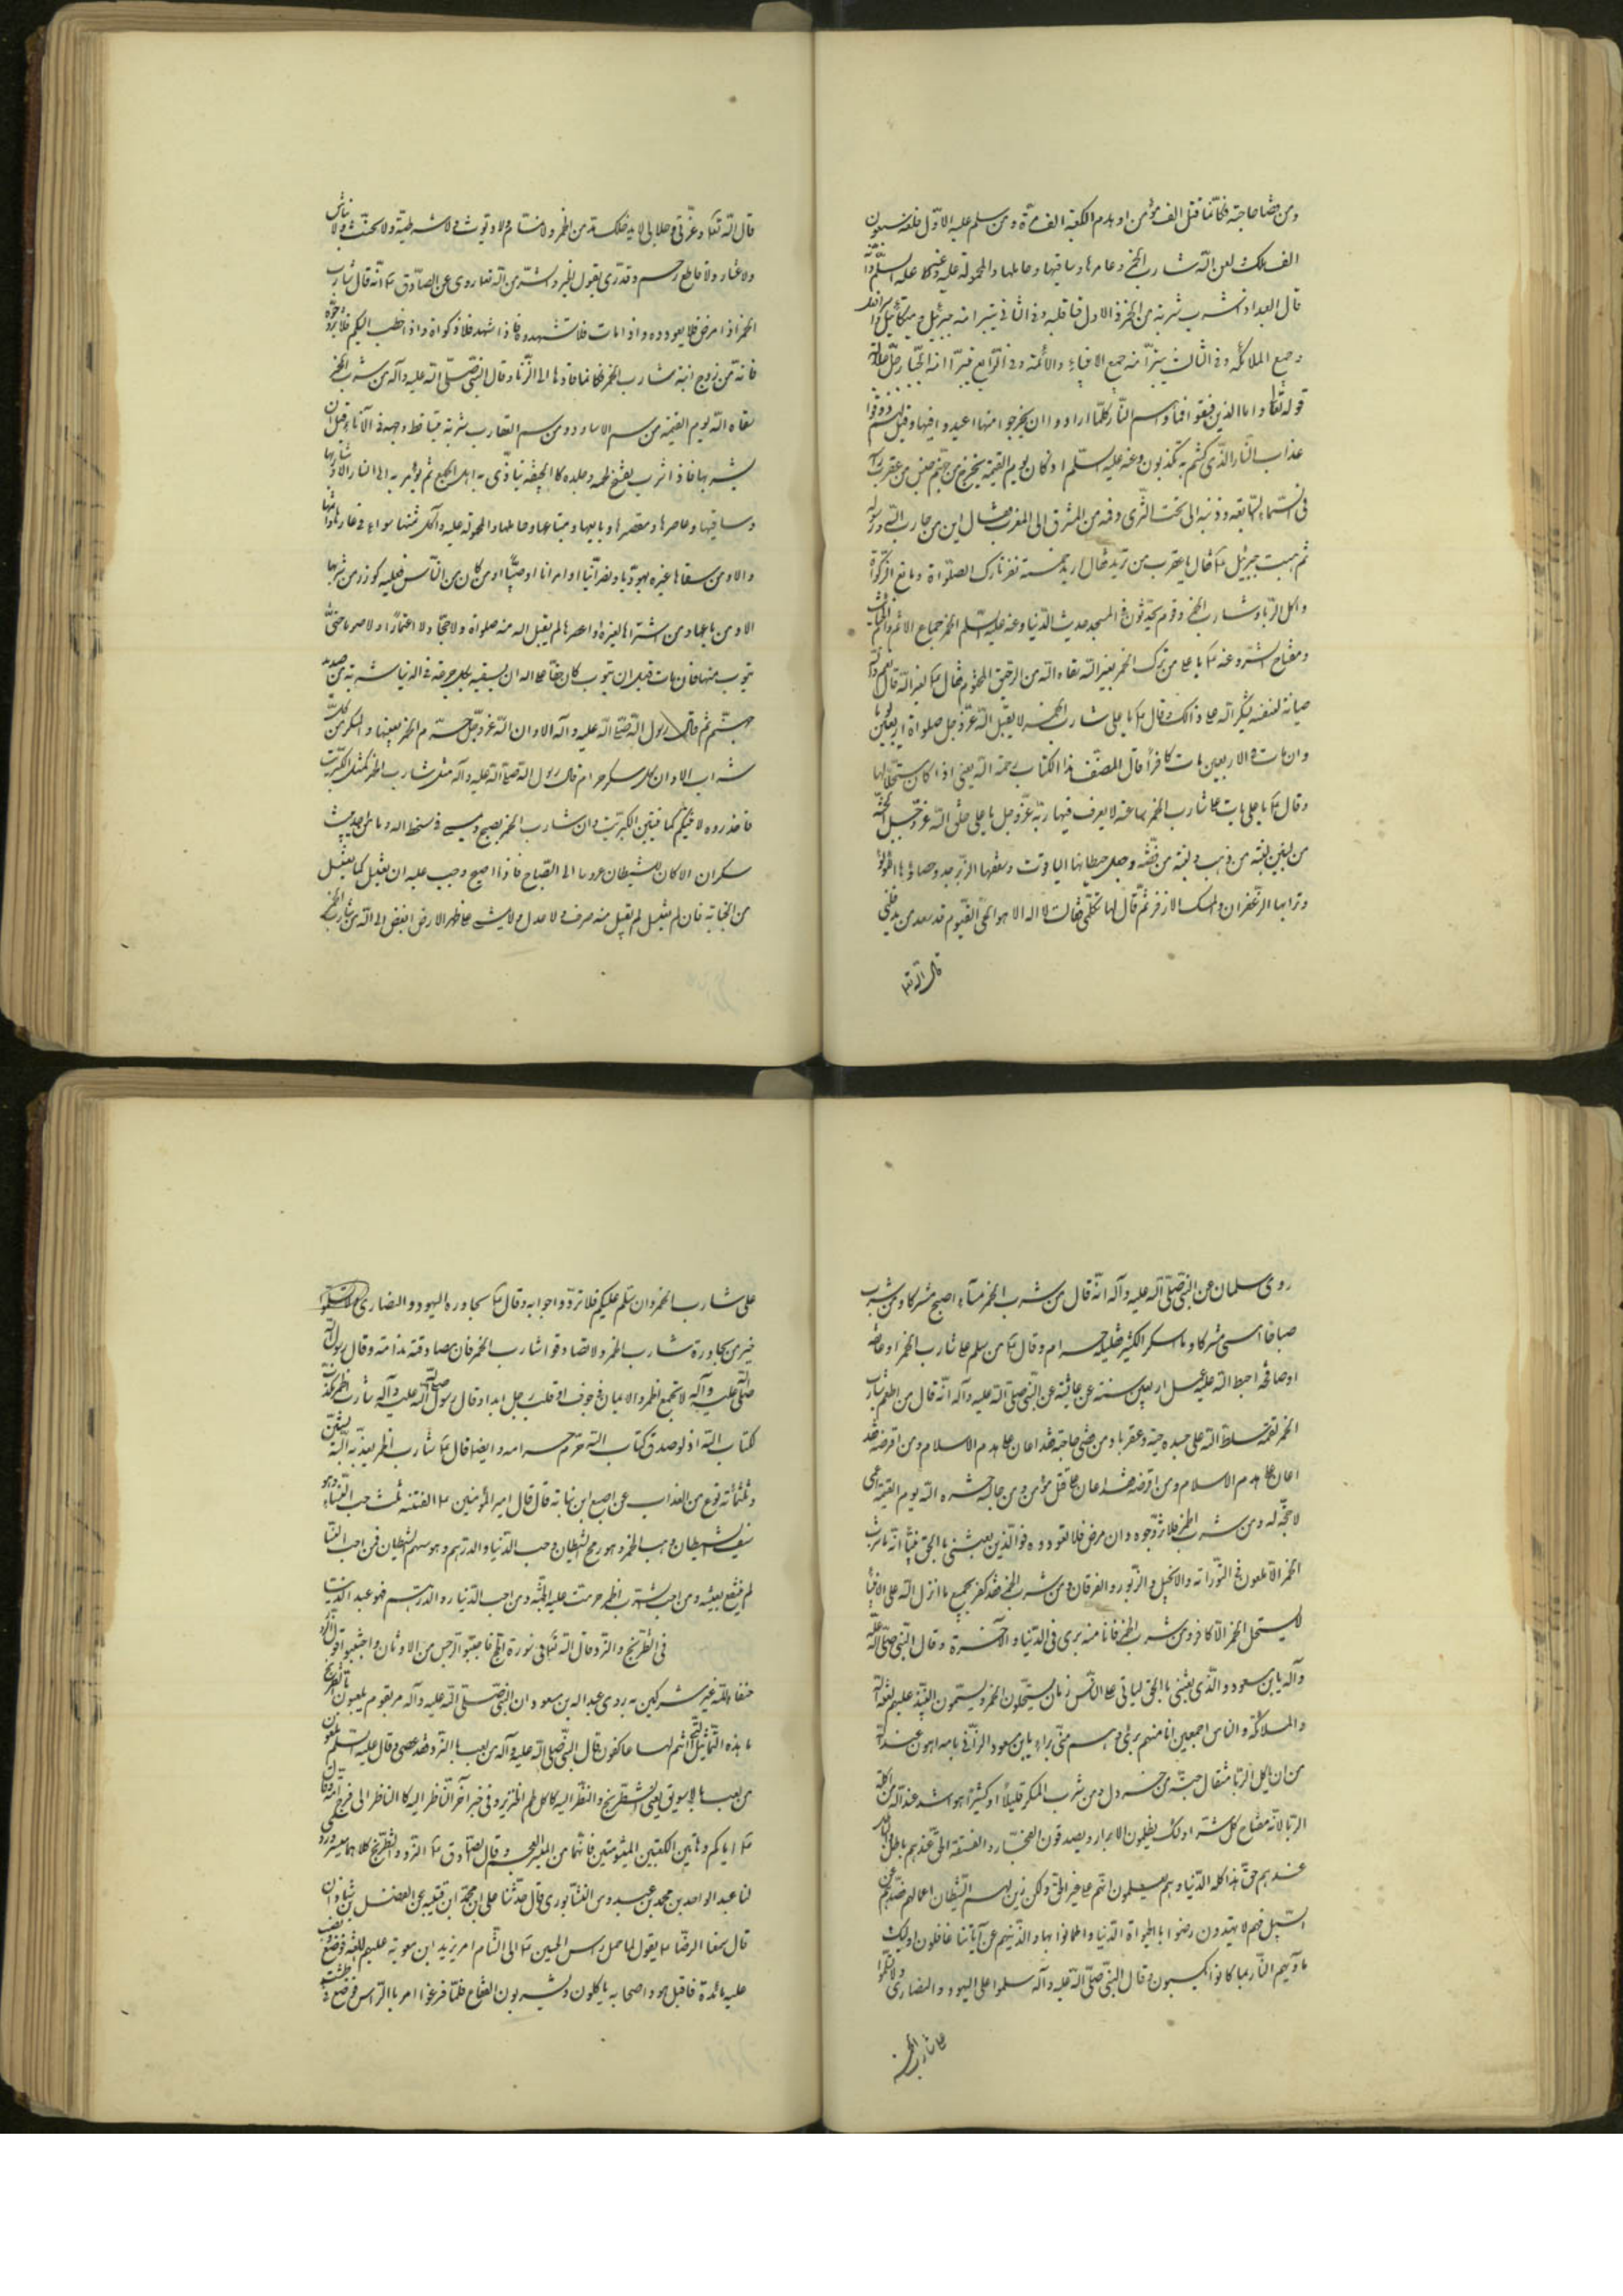 ومن قضا حاجته فكأنما قتل الف مؤمن او هدم الكعبة الف مرة ومن سلم عليه الاول فلعنه سبعون
الف ملك لعن الله شارب الخمر وعاصرها وساقيها وحاملها والمحمولة عليه وعنه عليه السلم
قال العبد اذا شرب شربة من الخمر في الاول قسا قلبه وفي الثاني تبرأ منه جبرئيل وميكائيل
وجميع الملائكة وفي الثالث تبرأ منه جميع الانبياء والائمة وفي الرابع تبرأ منه الجبار جل جلاله
قوله تعا واما الذين فسقوا فمأويهم النار كلما ارادوا ان يخرجوا منها اعيدوا فيها وقيل لهم ذوقوا
عذاب النار الذي كنتم به تكذبون وعنه عليه السلم اذ كان يوم القيمة يخرج من جهنم جنس من عقرب رأسه
في السماء السابعه وذنبه الى تحت الثرى وفمه من المشرق الى المغرب فقال اين من حارب الله ورسوله
ثم هبط جبرئيل فقال يا عقرب من تريد فقال اريد خمسة نفر تارك الصلواة ومانع الزكواة
واكل الربا وشارب الخمر وقوم يحدثون في المسجد حديث الدنيا وعنه عليه السلم الخمر جماع الاثم
ومفتاح الشر وعنه يا علي من ترك الخمر لغير الله سقاه الله من الرحيق المختوم فقال لغير الله قال نعم والله
صيانة لنفسه يشكر الله على ذالك وقال يا علي شارب الخمر لا يقبل الله عز وجل صلواة اربعين يوما
وان مات في الاربعين مات كافرا قال المصنف هذا الكتاب رحمة الله يعني اذا كان مستحلا لها
وقال يا علي يأت على شارب الخمر ساعة لا يعرف فيها ربه عز وجل يا علي خلق الله عز وجل الجنة
من لبنتين لبنة من ذهب ولبنة من فضة وجعل حيطانها الياقوت وسقفها الزبرجد وحصاؤها اللؤلؤ
وترابها الزعفران والمسك الازفر ثم قال لها تكلمي فقالت لا اله الا هو الحي القيوم قد سعد من يدخلني
قال الله تعا
قال الله تعا وعزتي وجلالي لا يدخلك مدمن الخمر ولا نمام ولا ديوث ولا شرطية ولا مخنث ولا نباش
ولا عشار ولا قاطع رحم ولا قدري يقول الخير والشر من الله تعا روى عن الصادق انه قال شارب
الخمر اذا مرض فلا يعودوه واذا مات فلا تشهدوه فاذا شهد فلا ذكواه واذا خطب اليكم فلا تزوجوه
فانه من زوج ابنته شارب الخمر فكانما قادها الى الزنا وقال النبي صلى الله عليه وآله من شرب الخمر
سقاه الله يوم القيمة من سم الاساود ومن سم العقارب شربة يتساقط وجهه في الآناء قبل ان
يشربها فاذا شرب تفسخ لحمه وجلده كا الجيفة يتأذى به اهل الجمع ثم يؤمر به الى النار الا وشاربها
وساقيها وعاصرها ومعتصرها وبايعها ومبتاعها وحاملها والمحمولة عليه وآكل ثمنها سواء في عارها واثمها
والا ومن سقاها غيره يهوديا ونصرانيا او امرأتا او صبيا او من كان من الناس فعليه كوزر من شربها
الا ومن باعها ومن اشتراها لغيره او اعصرها لم يقبل الله منه صلواة ولا حجا ولا اعتمارا ولا صوما حتى
يتوب منها فان مات قبل ان يتوب كان حقا على الله ان يسقيه بكل جرعة في الدنيا شربة من صديد
جهنم ثم قال رسول الله صلى الله عليه وآله الا وان الله عز وجل حرم الخمر بعينها والمسكر من كل
شراب الا وان كل مسكر حرام قال رسول الله صلى الله عليه وآله مثل شارب الخمر كمثل الكبريت
فاحذروه لا ينتنكم كما ينتن الكبريت وان شارب الخمر يصبح ويمسي في سخط الله وما من احد يبيت
سكران الا كان للشيطان عروسا الى الصباح فاذا اصبح وجب عليه ان يغتسل كما يغتسل
من الجنابة فان لم يغتسل لم يقبل منه صرف ولا عدل ولا يمشي على ظهر الارض ابغض الى الله من شارب الخمر
روى سلمان عن النبي صلى الله عليه وآله انه قال من شرب الخمر مساء اصبح مشركا ومن شرب
صباحا امسى مشركا وما اسكر الكثير فقليله حرام وقال من سلم على شارب الخمر او عانقه
او صافحه احبط الله عليه عمل اربعين سنة عن عائشة عن النبي صلى الله عليه وآله انه قال من اطعم شارب
الخمر لقمة سلط الله على جسده حية وعقربا ومن قضى حاجته فقد اعان على هدم الاسلام ومن اقرضه فقد
اعان على هدم الاسلام ومن اقرضه فقد اعان على قتل مؤمن ومن جالسه حشره الله يوم القيمة اعمى
لا حجة له ومن شرب الخمر فلا تزوجوه وان مرض فلا تعودوه فو الذين بعثني بالحق نبيا انه ما شرب
الخمر الا ملعون في التوراته والانجيل والزبور والفرقان ومن شرب الخمر فقد كفر بجميع ما انزل الله على الانبياء
لا يستحل الخمر الا كافر ومن شرب الخمر فانا منه بري في الدنيا والآخرة وقال النبي صلى الله عليه
وآله يا بن مسعود والذي بعثني بالحق ليأتي على الناس زمان يستحلون الخمر ويسمون النبيذ عليهم لعنة الله
والملائكة والناس اجمعين انا منهم بري وهم مني براء يا بن مسعود الزاني بامه اهون عند الله
من ان يأكل الربا مثقال حبة من خردل ومن شرب المسكر قليلا او كثيرا هو اشد عند الله من آكله
الربا لانه مفتاح كل شر اولئك يظلمون الابرار ويصدقون الفجار والفسقة الحق عندهم باطل والباطل
عندهم حق هذا كله الدنيا وهم يعلمون انهم على غير الحق ولكن زين لهم الشيطان اعمالهم فصدهم عن
السبيل فهم لا يهتدون رضوا بالحيواة الدنيا واطمانوا بها والذينهم عن آياتنا غافلون اولئك
ماويهم النار بما كانوا يكسبون وقال النبي صلى الله عليه وآله سلموا على اليهود والنصارى ولا تسلموا
على شارب الخمر
على شارب الخمر وان سلم عليكم فلا تردوا جوابه وقال مجاورة اليهود والنصارى
خير من مجاورة شارب الخمر ولا تصادقوا شارب الخمر فان مصادقته ندامة وقال رسول الله
صلى الله عليه وآله لا تجمع الخمر والايمان في جوف او قلب رجل ابدا وقال رسول الله صلى الله عليه وآله شارب الخمر مكذب
لكتاب الله اذ لو صدق كتاب الله حرم حرامه وايضا قال شارب الخمر يعذبه الله
وثلثمائة نوع من العذاب عن اصبغ ابن نباته قال قال امير المؤمنين الفتنه ثلث حب النساء وهو
سيف الشيطان وحب الخمر وهو رمح الشيطان وحب الدنيا والدرهم وهو سهم الشيطان فمن احب النسا
لم ينتفع بعيشه ومن احب شرب الخمر حرمت عليه الجنة ومن احب الدنيا والدرهم فهو عبد الدنيا
في الشطرنج والنرد قال الله تعا في سورة الحج فاجتنبوا الرجس من الاوثان واجتنبوا قول الزور
حنفاء لله غير مشركين به روى عبد الله بن مسعود ان النبي صلى الله عليه وآله مر بقوم يلعبون بالشطرنج
ما هذه التماثيل التي انتم لها عاكفون قال النبي صلى الله عليه وآله من لعب بالنرد فقد عصى وقال عليه السلم
من لعب يعني الشطرنج والنظر اليه كاكل لحم الخنزير وفي خبر آخر الناظر اليه كا الناظر الى فرج امه
اياكم وهاتين الكعبتين الميشومتين فانهما من الميسر العجم وقال الصادق النرد والشطرنج كلاهما ميسر
لنا عبد الواحد بن محمد بن عبدوس النيشابوري قال حدثنا علي ابن محمد ابن قتيبة عن الفضل بن شاذان
قال سمعنا الرضا يقول لما حمل راس الحسين الى الشام امر يزيد ابن معويه عليهم اللعنة فوضع ونصب
عليه مائدة فاقبل هو واصحابه ياكلون ويشربون الفقاع فلما فرغوا امر بالراس فوضع في طشت